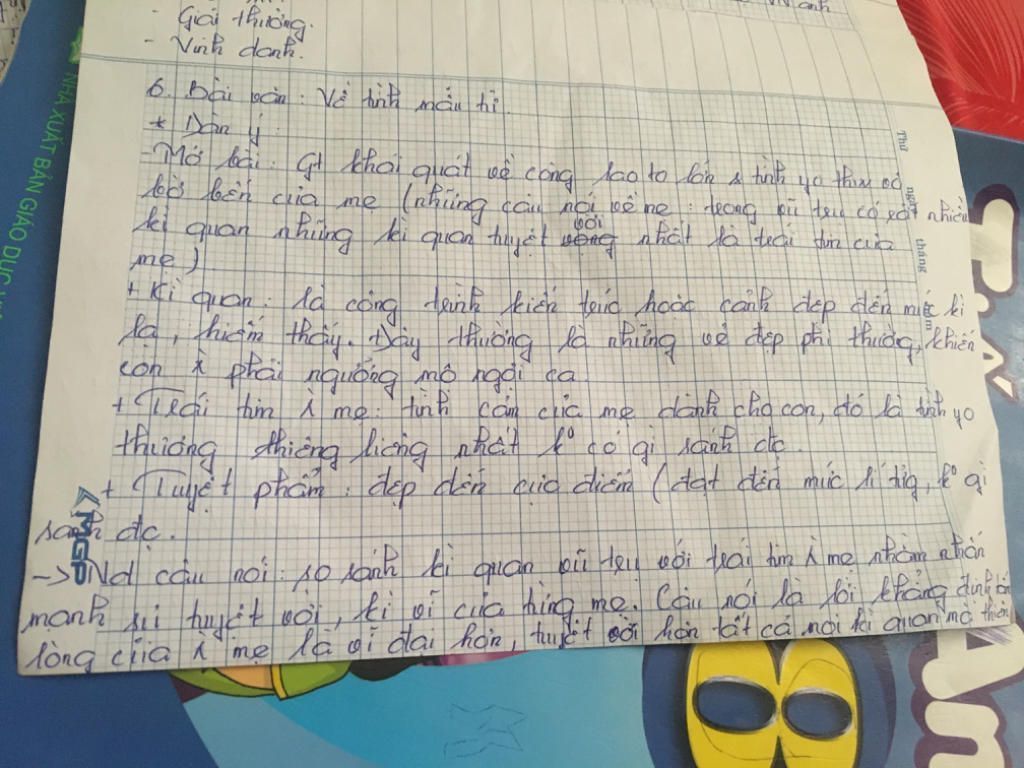 - Giải thưởng.
- Vinh danh.
6. Bài văn: Về tình mẫu tử.
* Dàn ý:
- Mở bài: Gt khái quát về công lao to lớn & tình yo thw vô
bờ bến của mẹ (những câu nói về mẹ: trong vũ trụ có rất nhiều
kì quan những kì quan tuyệt vời nhất là trái tim của
mẹ)
+ Kì quan: là công trình kiến trúc hoặc cảnh đẹp đến mức kì
lạ, hiếm thấy. Đây thường là những vẻ đẹp phi thường, khiến
con ng phải ngưỡng mộ ngợi ca
+ Trái tim ng mẹ: tình cảm của mẹ dành cho con, đó là tình yo
thương thiêng liêng nhất ko có gì sánh đc.
+ Tuyệt phẩm: đẹp đến cực điểm (đạt đến mức lí tưởng, ko gì
sánh đc.
-> Nd câu nói: so sánh kì quan vũ trụ với trái tim ng mẹ nhằm nhấn
mạnh sự tuyệt vời, kì vĩ của mẹ. Câu nói là lời khẳng định
lòng của ng mẹ là vĩ đại hơn, tuyệt vời hơn tất cả mọi kì quan mà thiên
Thứ
ngày
tháng
năm
MGP
NHÀ XUẤT BẢN GIÁO DỤC
8